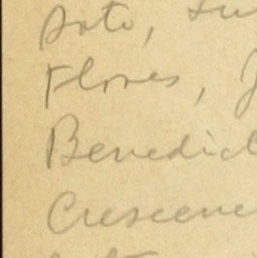 Soto, Lu
Flores, J
Benedict
Crescenc